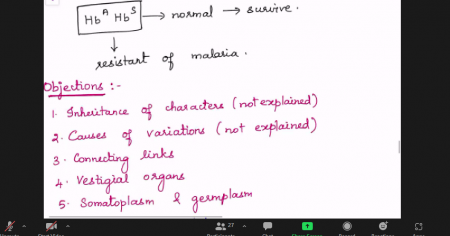 Hb^A Hb^S → normal → survive.
↓
resistant of malaria.
Objections :-
1. Inheritance of characters (not explained)
2. Causes of variations (not explained)
3. Connecting links
4. Vestigial organs
5. Somatoplasm & germplasm
27